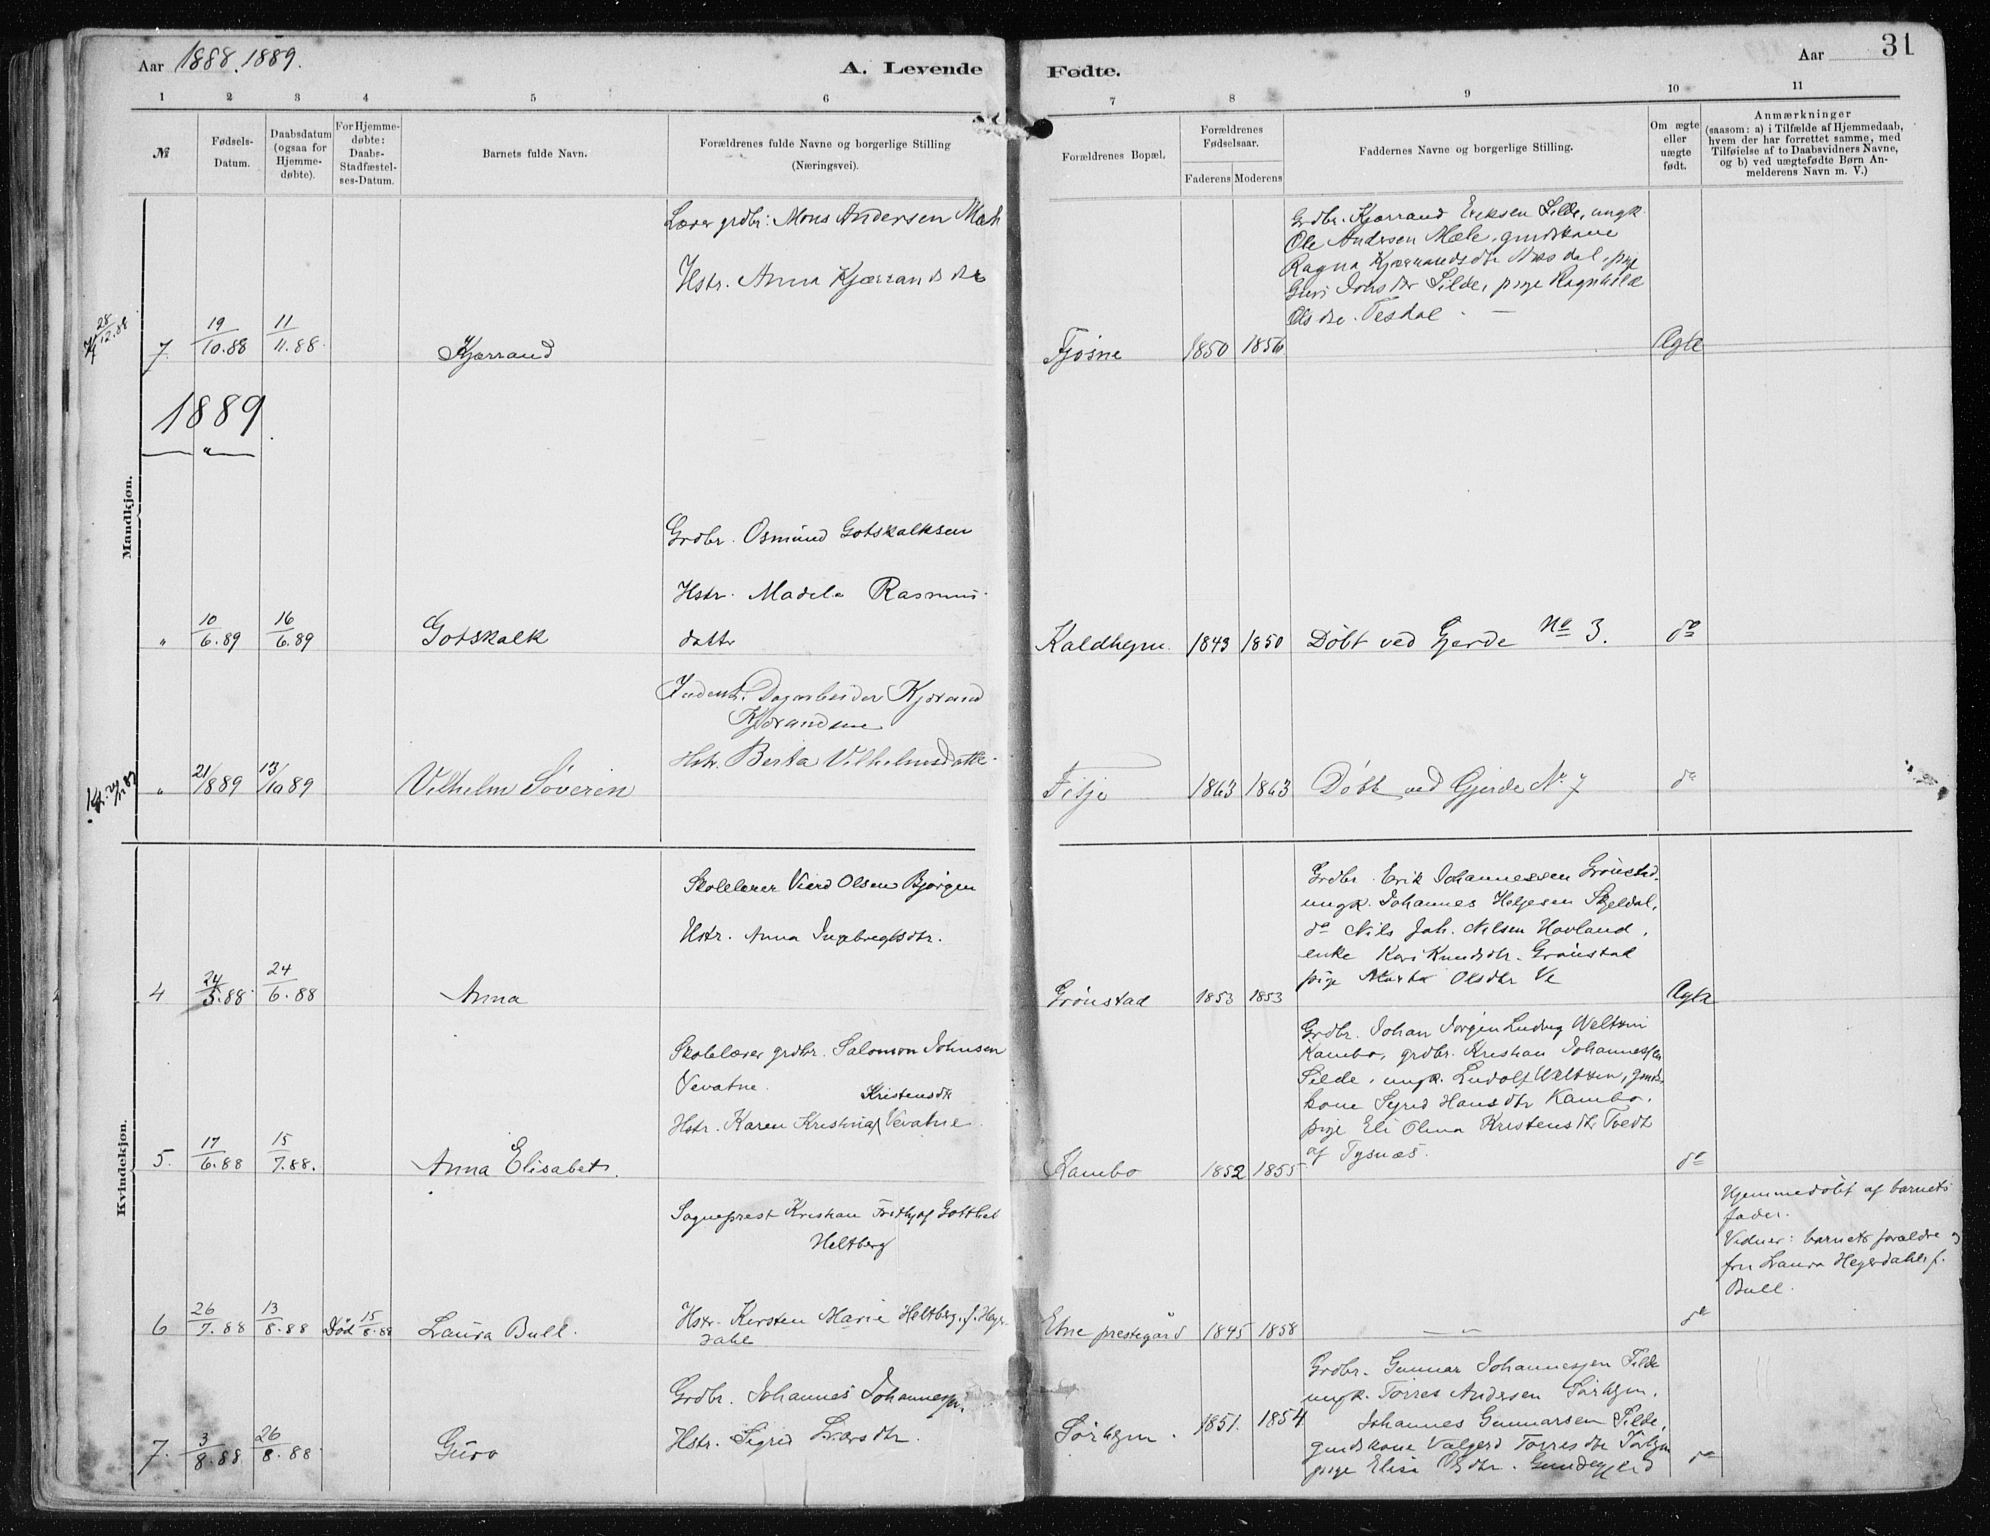 Aar 1888. 1889.
A. Levende Fødte.
Aar 31
1 2 3 4 5 6 7 8 9 10 11
№
Fødsels-Datum.
Daabsdatum (ogsaa for Hjemme-døbte).
For Hjemme-døbte: Daabs-Stadfæstel-ses-Datum.
Barnets fulde Navn.
Forældrenes fulde Navne og borgerlige Stilling
(Næringsvei).
Forældrenes Bopæl.
Forældrenes Fødselsaar.
Faderens Moderens
Faddernes Navne og borgerlige Stilling.
Om ægte eller uægte født.
Anmærkninger
(saasom: a) i Tilfælde af Hjemmedaab,
hvem der har forrettet samme, med
Tilføielse af to Daabsvidners Navne,
og b) ved uægtefødte Børn An-
melderens Navn m. V.)
Mandkjøn.
28/12.88
7. 19/10.88 11/11.88. Kjærrand
Lærer grdbr: Mons Andersen
Hstr. Anna Kjærrandsdtr
Fjøsne 1850 1856
Grdbr. Kjærrand Eriksen Silde, ungk.
Ole Andersen Mæle, gmdskone
Ragna Kjærrandsdtr Næsdal, pige
Guri Jonsdtr Silde, pige Ragnhild
Olsdtr. Tesdal. —
Ægte
1889.
" 10/6.89 16/6.89 Gotskalk
Grdbr. Osmund Gotskalksen
Hstr. Madela Rasmus-
datter
Kaldhejm. 1843 1850 Døbt ved Gjerde No 3. do
" 21/8 89 13/10 89 Vilhelm Søverin
Inderst. Dagarbeider Kjørand
Kjørandsen
Hstr. Berta Vilhelmsdatter
Fitje 1863 1863 Døbt ved Gjerde No 7 do
Kvindekjøn.
4 24/5.88 24/6.88 Anna
Skolelærer Vierd Olsen Bjørgen
Hstr. Anna Ingebregtsdtr.
Grønstad 1853 1853
Grdbr. Erik Johannessen Grønstad,
ungk. Johannes Helgesen Skjeldal,
do Nils Joh. Nilsen Hovland,
enke Kari Knudsdtr. Grønstad
pige Marta Olsdtr Ve
Ægte
5. 17/6.88 15/7.88. Anna Elisabet.
Skolelærer grdbr. Salomon Johnsen
Vevatne.
Kristensdtr
Hstr. Karen Kristina Vevatne.
Kambo 1852 1855
Grdbr. Johan Jørgen Ludvig Weltzin
Kambo, grdbr. Kristian Johannessen
Silde, ungk. Ludolf Weltzin, gmds-
kone Sigrid Hansdtr Kambo,
pige Eli Olina Kristensdtr Tvedt
af Tysnæs.
do
6 26/7.88 13/8.88 Død 15/8.88 Laura Bull.
Sogneprest Kristian Fredhjof Gottlieb
Heltberg
Hstr. Kirsten Marie Heltberg, f. Hejer-
dahl
Etne prestegård 1845 1858 — " — do
Hjemmedøbt af barnets
fader.
Vidner: barnets forældre og
fru Laura Hejerdahl f.
Bull.
7. 3/8.88 26/8.88 Guro
Grdbr. Johannes Johannessen.
Hstr. Sigrid Larsdtr.
Sørhejm. 1851. 1854
Grdbr. Gunnar Johannessen Silde
ungk. Torres Andersen Sørhejm,
Johannes Gunnarsen Silde,
gmdskone Valgerd Torresdtr Sørhejm
pige Elisi Olsdtr. Grindegjerd
do